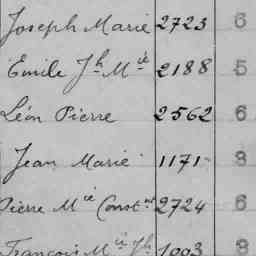 Joseph Marie 2723 6
Emile Jh Mie 2188 5
Léon Pierre 2562 6
Jean Marie 1171 3
Pierre Mie Constnt 2724 6
François Mie Jh 1003 3